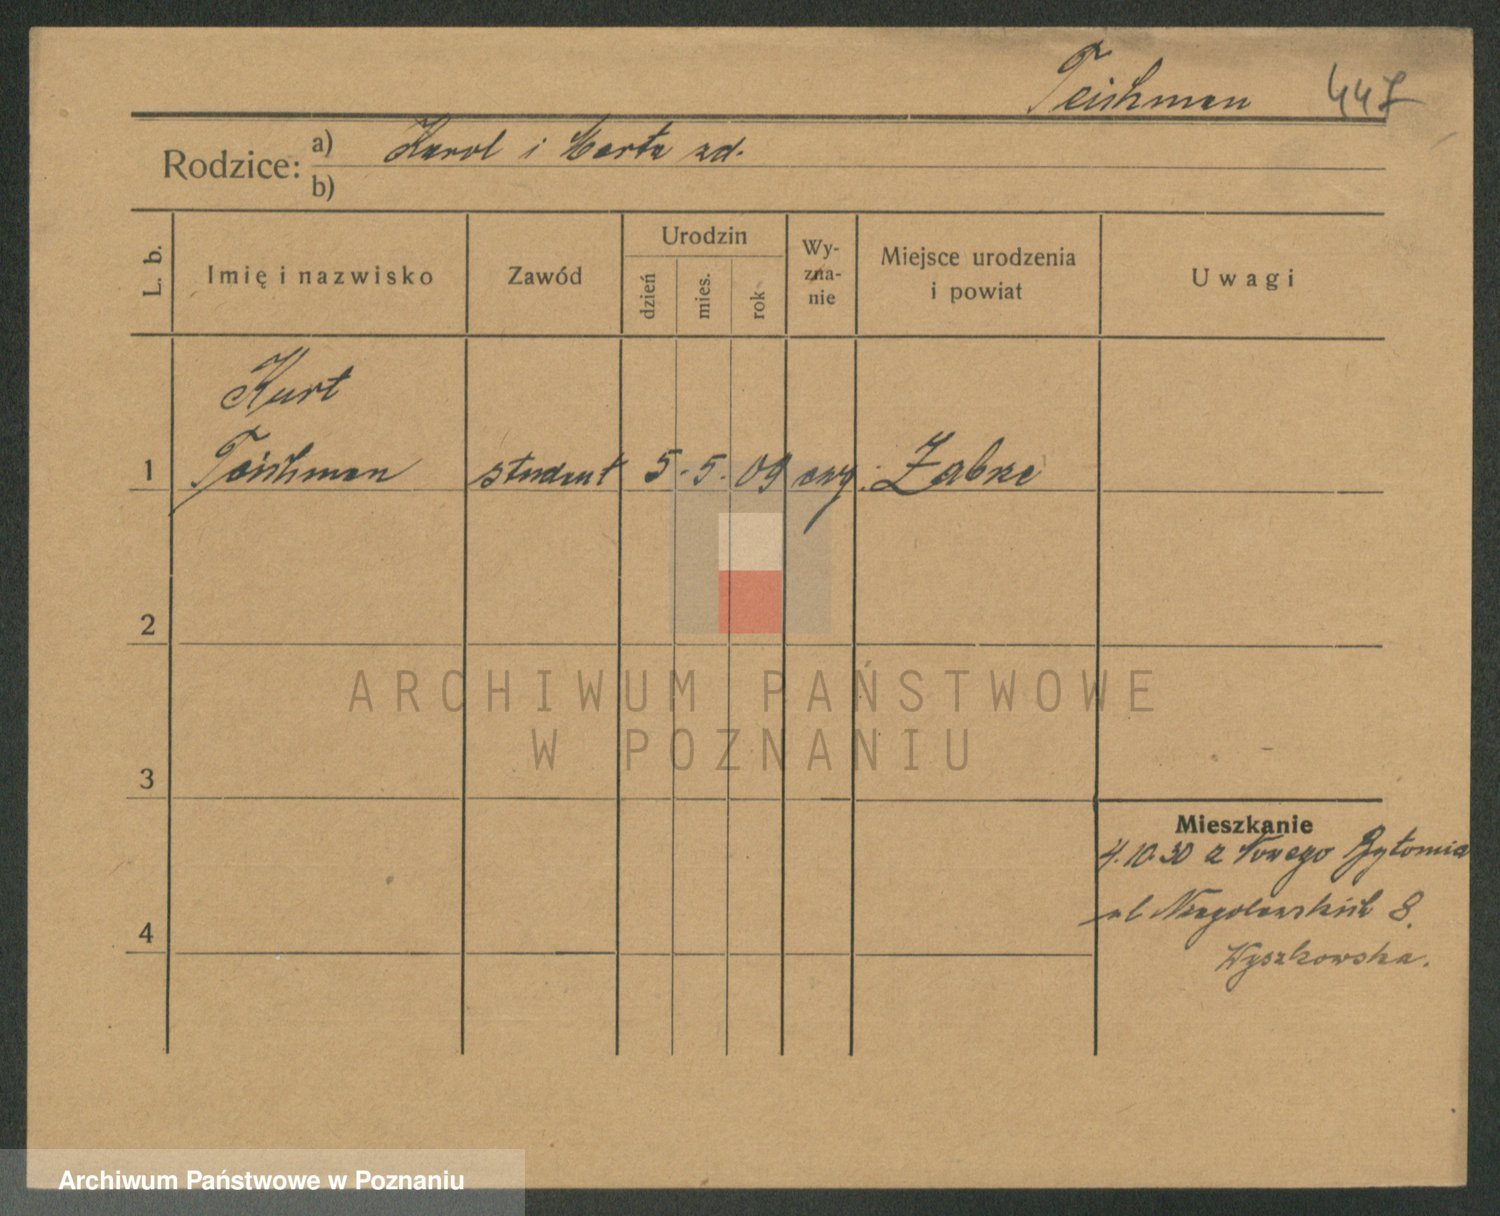 Teichman 447
Rodzice: a) Karol i Marta zd.
b)
L. b.
Imię i nazwisko
Zawód
Urodzin
dzień
mies.
rok
Wy-
zna-
nie
Miejsce urodzenia
i powiat
Uwagi
Kurt
1 Teichman student 5. 5. 09 ewg. Zabrze
2
3
4
Mieszkanie
4.10.30 z Nowego Bytomia
ul Niegolewskich 8.
Wyszkowska.
ARCHIWUM PAŃSTWOWE
W POZNANIU
Archiwum Państwowe w Poznaniu